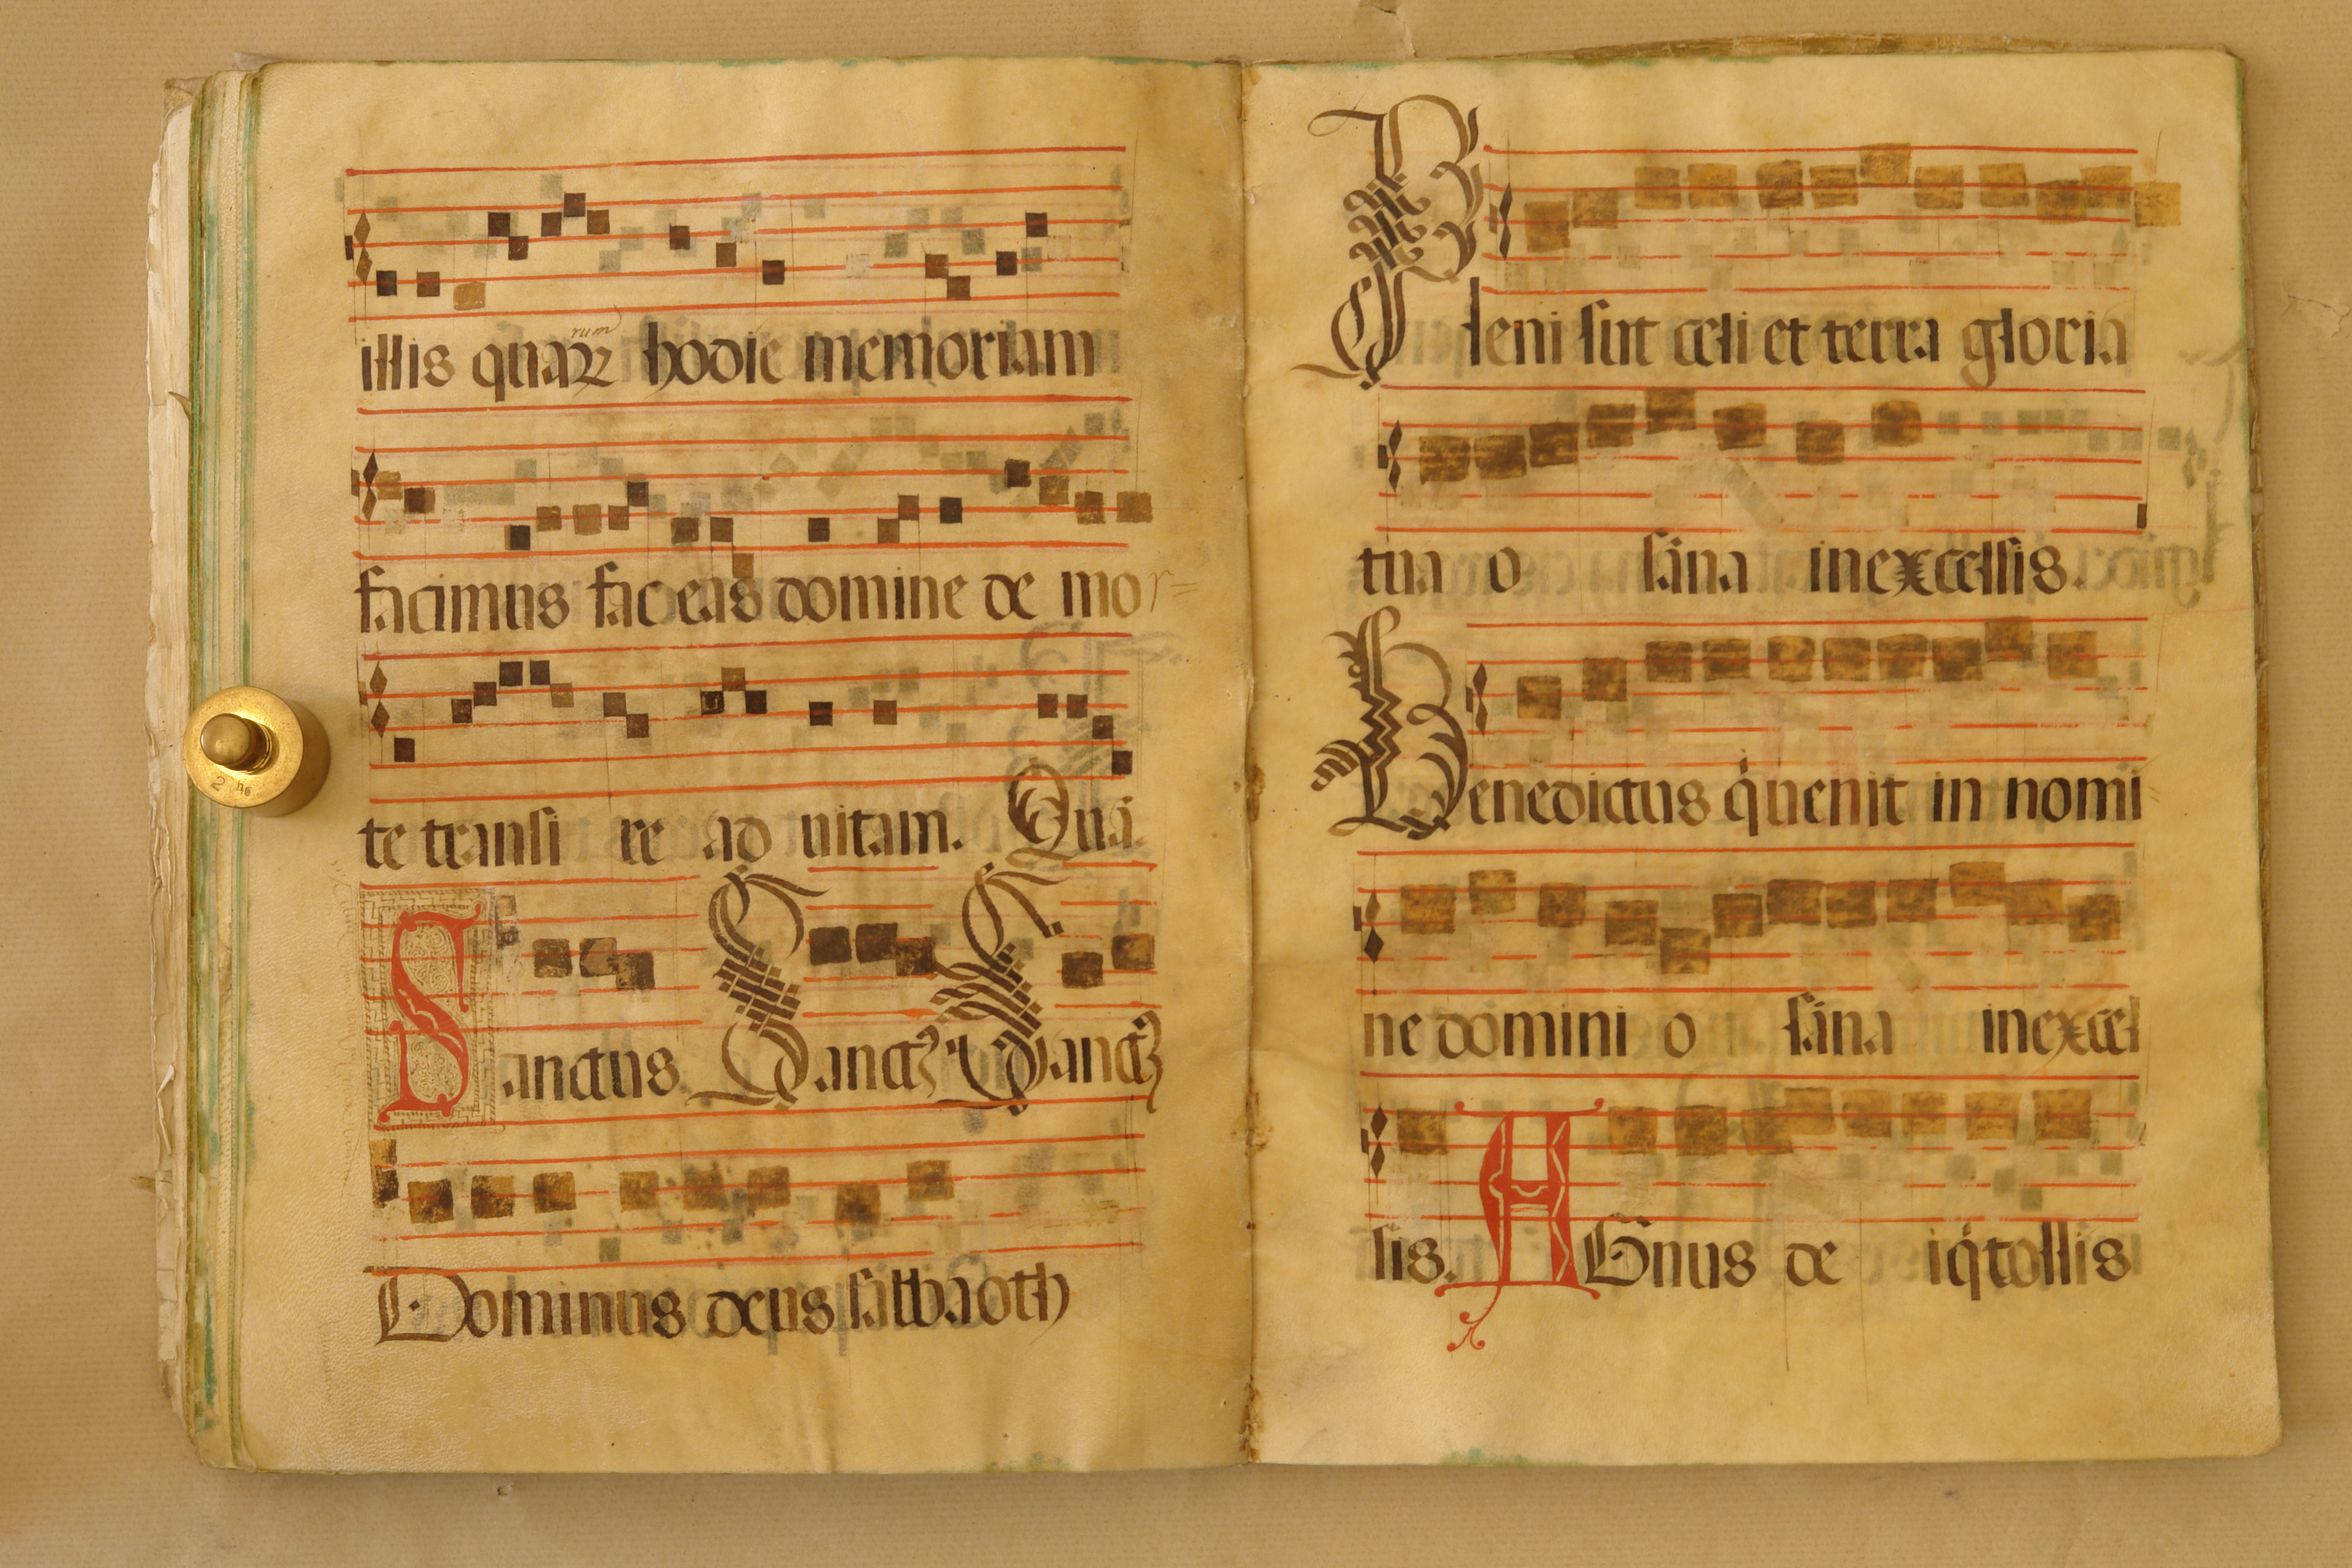 illis quaꝝ hodie memoriam
rum
facimus fac eas domine de mor=
te transi re ad uitam. Qua.
Sanctus Sanctꝰ Sanctꝰ
Dominus deus sabbaoth
Pleni sũt celi et terra gloria
tua o sãna in excelsis.
Benedictus q̇ uenit in nomi
ne domini o sãna in excel
sis. AGnus de i q̇ tollis